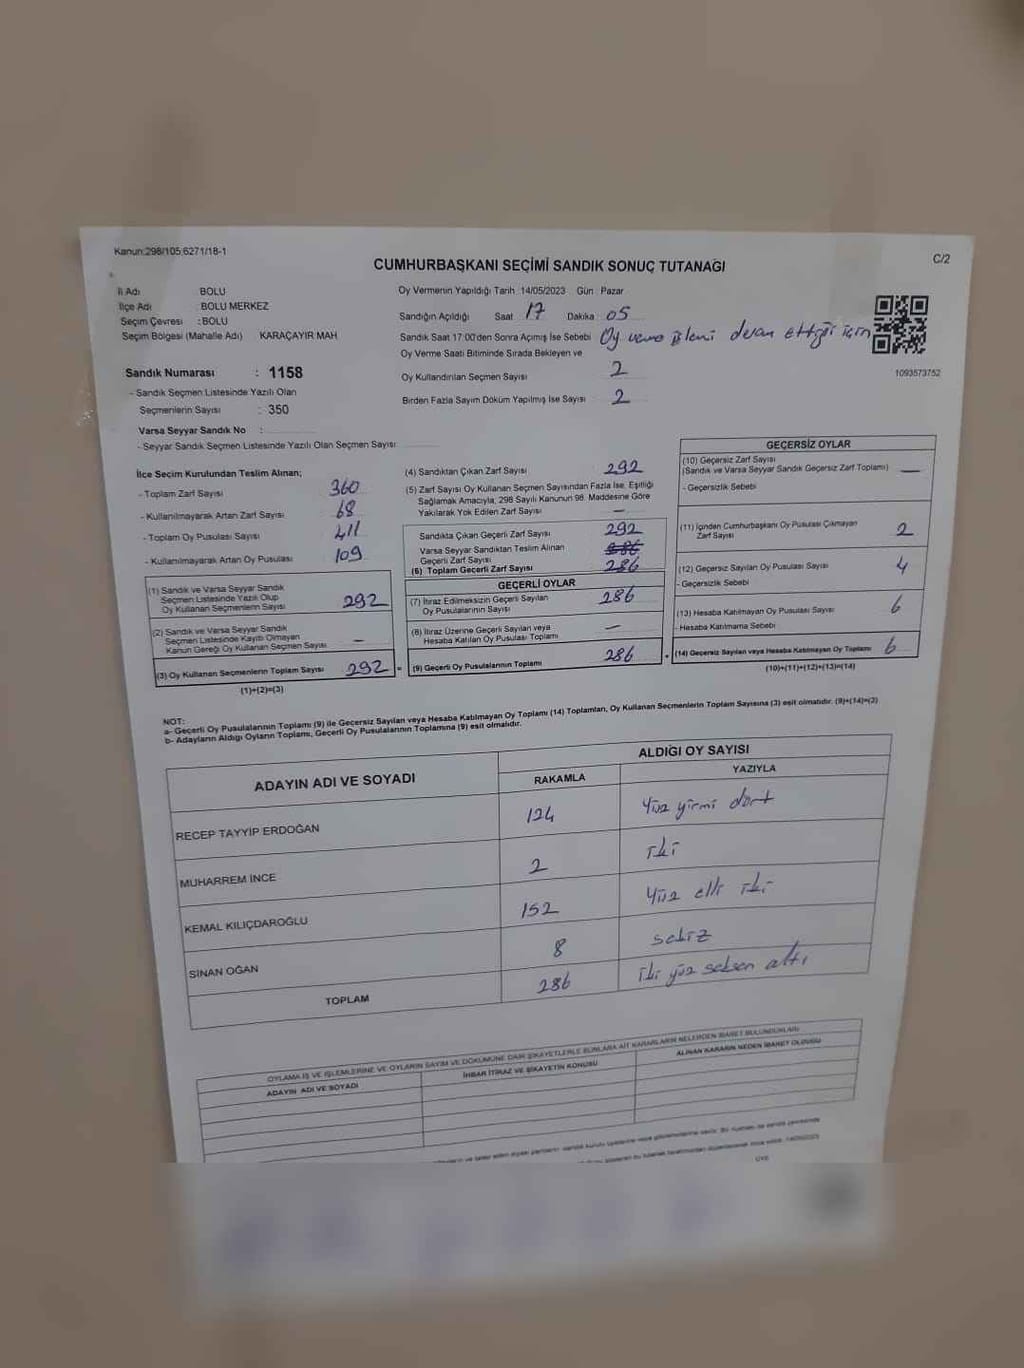 Kanun:298/105;6271/18-1
C/2
CUMHURBAŞKANI SEÇİMİ SANDIK SONUÇ TUTANAĞI
İl Adı BOLU
İlçe Adı BOLU MERKEZ
Seçim Çevresi : BOLU
Seçim Bölgesi (Mahalle Adı) KARAÇAYIR MAH
Sandık Numarası : 1158
- Sandık Seçmen Listesinde Yazılı Olan
Seçmenlerin Sayısı : 350
Varsa Seyyar Sandık No :
- Seyyar Sandık Seçmen Listesinde Yazılı Olan Seçmen Sayısı
Oy Vermenin Yapıldığı Tarih :14/05/2023 Gün : Pazar
Sandığın Açıldığı Saat 17 Dakika : 05
Sandık Saat 17.00'den Sonra Açımış İse Sebebi Oy verme işlemi devam ettiği için
Oy Verme Saati Bitiminde Sırada Bekleyen ve
Oy Kullandırılan Seçmen Sayısı 2
Birden Fazla Sayım Döküm Yapılmış İse Sayısı 2
1093573752
İlçe Seçim Kurulundan Teslim Alınan;
- Toplam Zarf Sayısı 360
- Kullanılmayarak Artan Zarf Sayısı 68
- Toplam Oy Pusulası Sayısı 411
- Kullanılmayarak Artan Oy Pusulası 109
(1) Sandık ve Varsa Seyyar Sandık
Seçmen Listesinde Yazılı Olup
Oy Kullanan Seçmenlerin Sayısı 292
(2) Sandık ve Varsa Seyyar Sandık
Seçmen Listesinde Kayıtlı Olmayan
Kanun Gereği Oy Kullanan Seçmen Sayısı –
(3) Oy Kullanan Seçmenlerin Toplam Sayısı 292 =
(1)+(2)=(3)
(4) Sandıktan Çıkan Zarf Sayısı 292
(5) Zarf Sayısı Oy Kullanan Seçmen Sayısından Fazla İse, Eşitliği
Sağlamak Amacıyla, 298 Sayılı Kanunun 98. Maddesine Göre
Yakılarak Yok Edilen Zarf Sayısı –
Sandıkta Çıkan Geçerli Zarf Sayısı 292
Varsa Seyyar Sandıktan Teslim Alınan
Geçerli Zarf Sayısı 286
(6) Toplam Geçerli Zarf Sayısı 286
GEÇERLİ OYLAR
(7) İtiraz Edilmeksizin Geçerli Sayılan
Oy Pusulalarının Sayısı 286
(8) İtiraz Üzerine Geçerli Sayılan veya
Hesaba Katılan Oy Pusulası Toplamı –
(9) Geçerli Oy Pusulalarının Toplamı 286
GEÇERSİZ OYLAR
(10) Geçersiz Zarf Sayısı
(Sandık ve Varsa Seyyar Sandık Geçersiz Zarf Toplamı) –
- Geçersizlik Sebebi
(11) İçinden Cumhurbaşkanı Oy Pusulası Çıkmayan
Zarf Sayısı 2
(12) Geçersiz Sayılan Oy Pusulası Sayısı 4
- Geçersizlik Sebebi
(13) Hesaba Katılmayan Oy Pusulası Sayısı 6
- Hesaba Katılmama Sebebi
(14) Geçersiz Sayılan veya Hesaba Katılmayan Oy Toplamı 6
(10)+(11)+(12)+(13)=(14)
NOT:
a- Geçerli Oy Pusulalarının Toplamı (9) ile Geçersiz Sayılan veya Hesaba Katılmayan Oy Toplamı (14) Toplamları, Oy Kullanan Seçmenlerin Toplam Sayısına (3) eşit olmalıdır. (9)+(14)=(3)
b- Adayların Aldığı Oyların Toplamı, Geçerli Oy Pusulalarının Toplamına (9) eşit olmalıdır.
ADAYIN ADI VE SOYADI ALDIĞI OY SAYISI
RAKAMLA YAZIYLA
RECEP TAYYİP ERDOĞAN 124 Yüz yirmi dört
MUHARREM İNCE 2 iki
KEMAL KILIÇDAROĞLU 152 Yüz elli iki
SİNAN OĞAN 8 sekiz
TOPLAM 286 iki yüz seksen altı
OYLAMA İŞ VE İŞLEMLERİNE VE OYLARIN SAYIM VE DÖKÜMÜNE DAİR ŞİKAYETLERLE BUNLARA AİT KARARLARIN NELERDEN İBARET BULUNDUKLARI
ADAYIN ADI VE SOYADI İHBAR İTİRAZ VE ŞİKAYETİN KONUSU ALINAN KARARIN NEDEN İBARET OLDUĞU
ÜYE